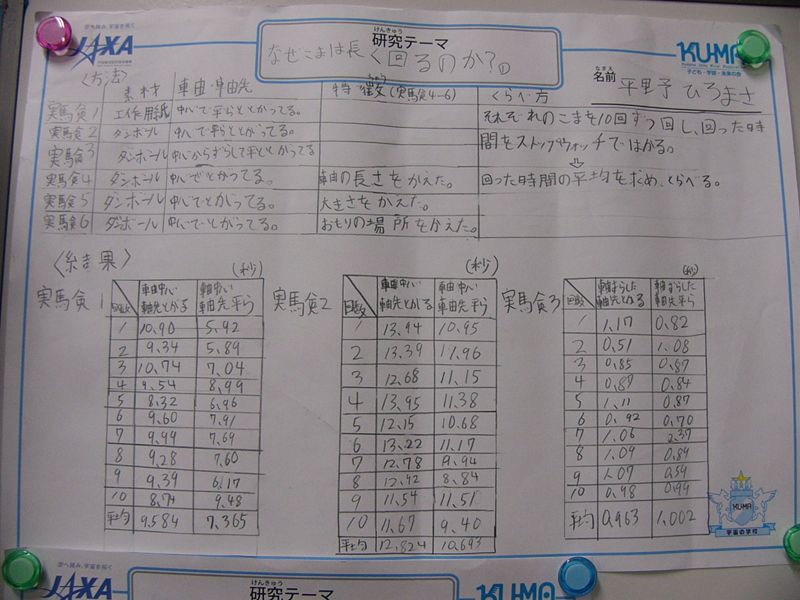 空へ挑み、宇宙を拓く
JAXA
けんきゅう
研究テーマ
なぜこまは長く回るのか?①
KUMA
子ども・宇宙・未来の会
なまえ
名前 平野 ひろまさ
〈方法〉
素材 車由・車由先 特徴(実験4~6) くらべ方
実験1 工作用紙 中心で平らととがってる。
実験2 ダンボール 中心で平らととがってる。
実験3 ダンボール 中心からずらして平ととがってる
実験4 ダンボール 中心でとがってる。 軸の長さをかえた。
実験5 ダンボール 中心でとがってる。 大きさをかえた。
実験6 ダンボール 中心でとがってる。 おもりの場所をかえた。
それぞれのこまを10回ずつ回し、回った時
間をストップウォッチではかる。
⇩
回った時間の平均を求め、くらべる。
〈結果〉
実験1 (秒)
回数 軸中心 軸先とがる 軸中心 軸先平ら
1 10.90 5.92
2 9.34 5.89
3 10.74 7.04
4 9.54 8.99
5 8.32 6.96
6 9.60 7.91
7 9.99 7.69
8 9.28 7.60
9 9.39 6.17
10 8.74 9.48
平均 9.584 7.365
実験2 (秒)
回数 軸中心 軸先とがる 軸中心 軸先平ら
1 13.94 10.95
2 13.39 11.96
3 12.68 11.15
4 13.95 11.38
5 12.15 10.68
6 13.22 11.17
7 12.78 9.94
8 12.92 8.84
9 11.54 11.51
10 11.67 9.40
平均 12.824 10.693
実験3 (秒)
回数 軸ずらした 軸先とがる 軸ずらした 軸先平ら
1 1.17 0.82
2 0.51 1.08
3 0.85 0.87
4 0.87 0.84
5 1.11 0.87
6 0.92 0.70
7 1.06 2.37
8 1.09 0.89
9 1.07 0.59
10 0.98 0.99
平均 0.963 1.002
KUMA
宇宙の学校
空へ挑み、宇宙を拓く
JAXA
けんきゅう
研究テーマ
KUMA